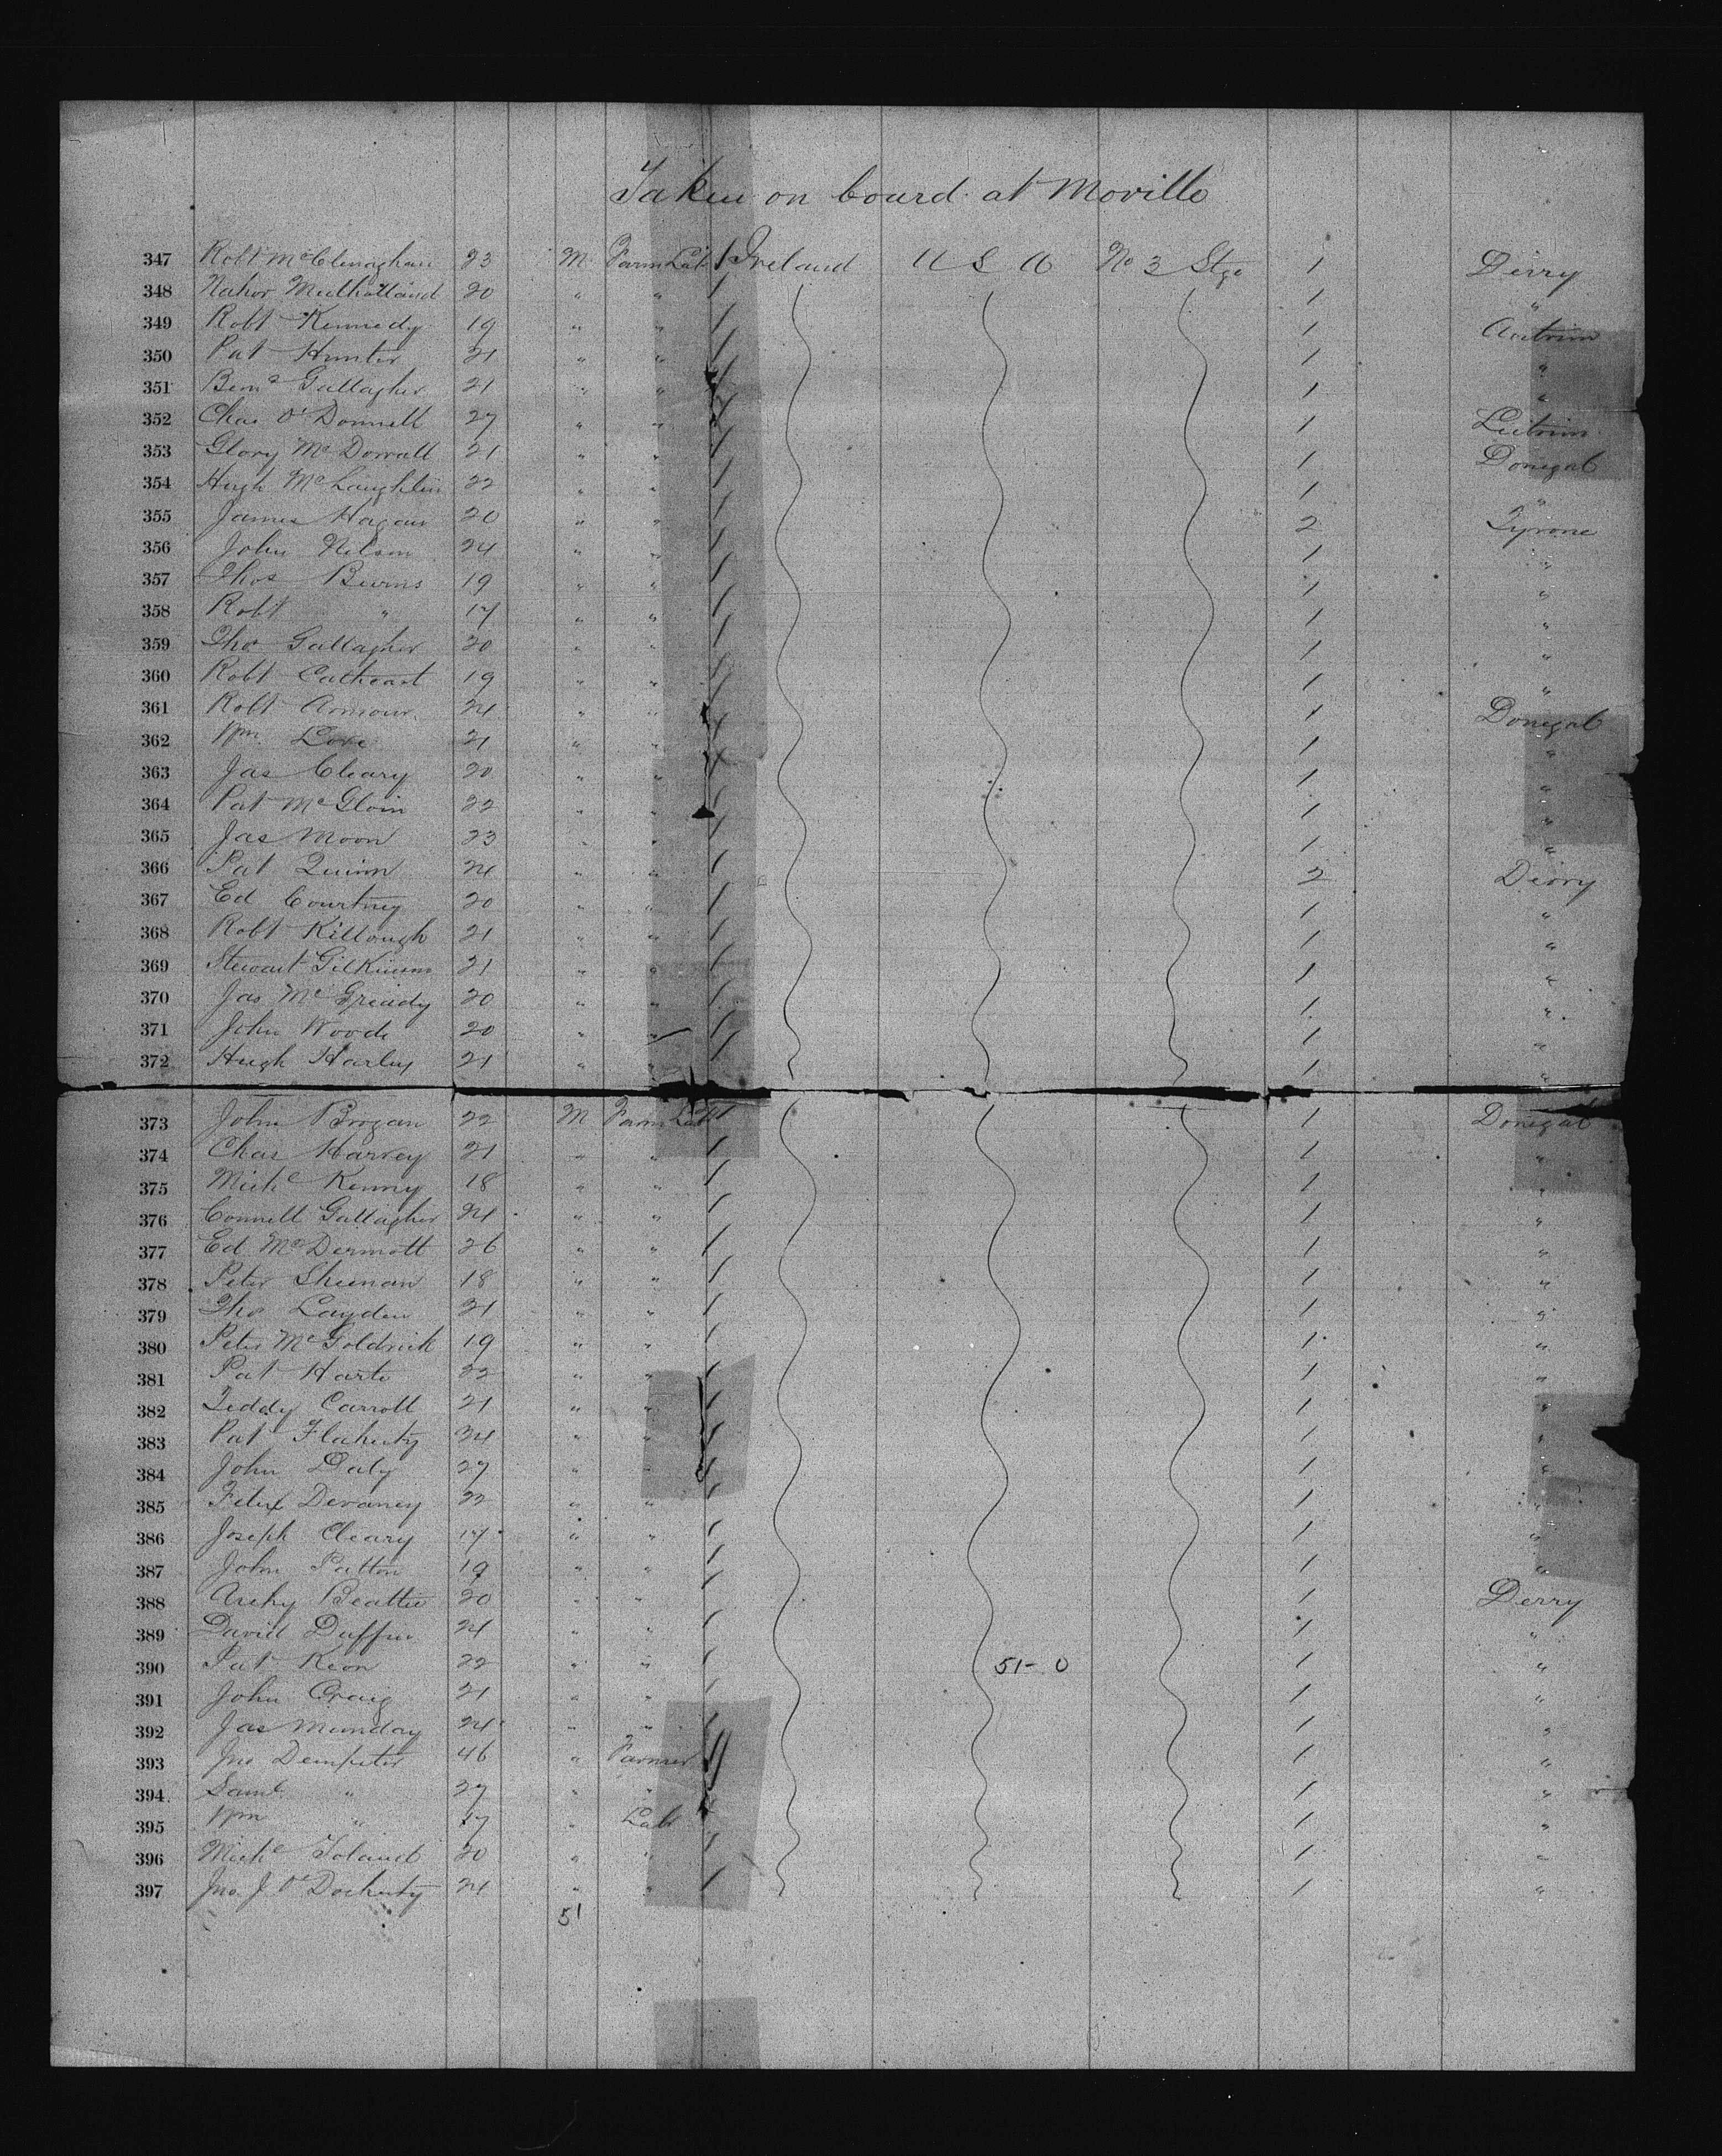 Taken on board at Moville
347 Robt McClenaghan 23 M Farm Lab 1 Ireland U S A No 3 Stge 1 Derry
348 Nahor Mulholland 20 " " 1 1 "
349 Robt Kennedy 19 " " 1 1 Antrim
350 Pat Hunter 21 " " 1 1 "
351 Gallagher 21 " " 1 1 "
352 Chas O'Donnell 27 " " 1 1 Leitrim
353 21 " " 1 1 Donegal
354 Hugh McLaughlin 22 " " 1 1 "
355 James Hagan 20 " " 1 2 Tyrone
356 John Nelson 24 " " 1 1 "
357 Thos Burns 19 " " 1 1 "
358 Robt " 17 " " 1 1 "
359 Tho Gallagher 20 " " 1 1 "
360 Robt Cathcart 19 " " 1 1 "
361 Robt Armour 24 " " 1 1 Donegal
362 Wm Love 21 " " 1 1 "
363 Jas Cleary 20 " " 1 1 "
364 Pat McGloin 22 " " 1 1 "
365 Jas Moon 23 " " 1 1 "
366 Pat Quinn 24 " " 1 2 Derry
367 Ed Courtney 20 " " 1 1 "
368 Robt Killough 21 " " 1 1 "
369 Stewart 21 " " 1 1 "
370 Jas 20 " " 1 1 "
371 John Woods 20 " " 1 1 "
372 Hugh Harley 21 " " 1 1 "
373 John Brogan 22 M Farm Lab 1 1 Donegal
374 Chas Harvey 21 " " 1 1 "
375 Michl Kenny 18 " " 1 1 "
376 Connell Gallagher 24 " " 1 1 "
377 Ed McDermott 26 " " 1 1 "
378 Peter Sheenan 18 " " 1 1 "
379 Tho Layden 21 " " 1 1 "
380 Peter McGoldrick 19 " " 1 1 "
381 Pat Harte 22 " " 1 1 "
382 Teddy Carroll 21 " " 1 1 "
383 Pat Flaherty 34 " " 1 1 "
384 John Daly 27 " " 1 1 "
385 Felix Devaney 22 " " 1 1 "
386 Joseph Cleary 17 " " 1 1 "
387 John Patton 19 " " 1 1 "
388 Archy Beattie 20 " " 1 1 Derry
389 David Duffin 24 " " 1 1 "
390 Pat Keon 22 " " 1 51-0 1 "
391 John Craig 21 " " 1 1 "
392 Jas Munday 24 " " 1 1 "
393 Jno Dempster 46 " Farmer 1 1 "
394 Saml " 27 " " 1 1 "
395 Wm " 17 " Lab 1 1 "
396 Michl Toland 20 " " 1 1 "
397 Jno. J. O'Docherty 24 " " 1 1 "
51